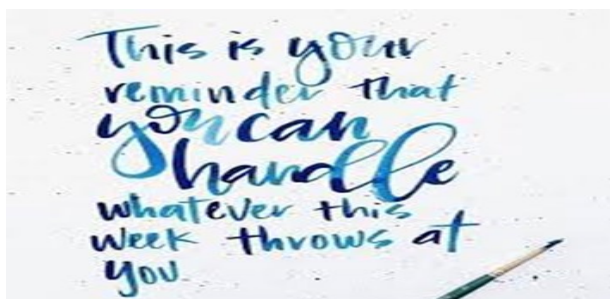 This is your
reminder that
you can
handle
whatever this
week throws at
you